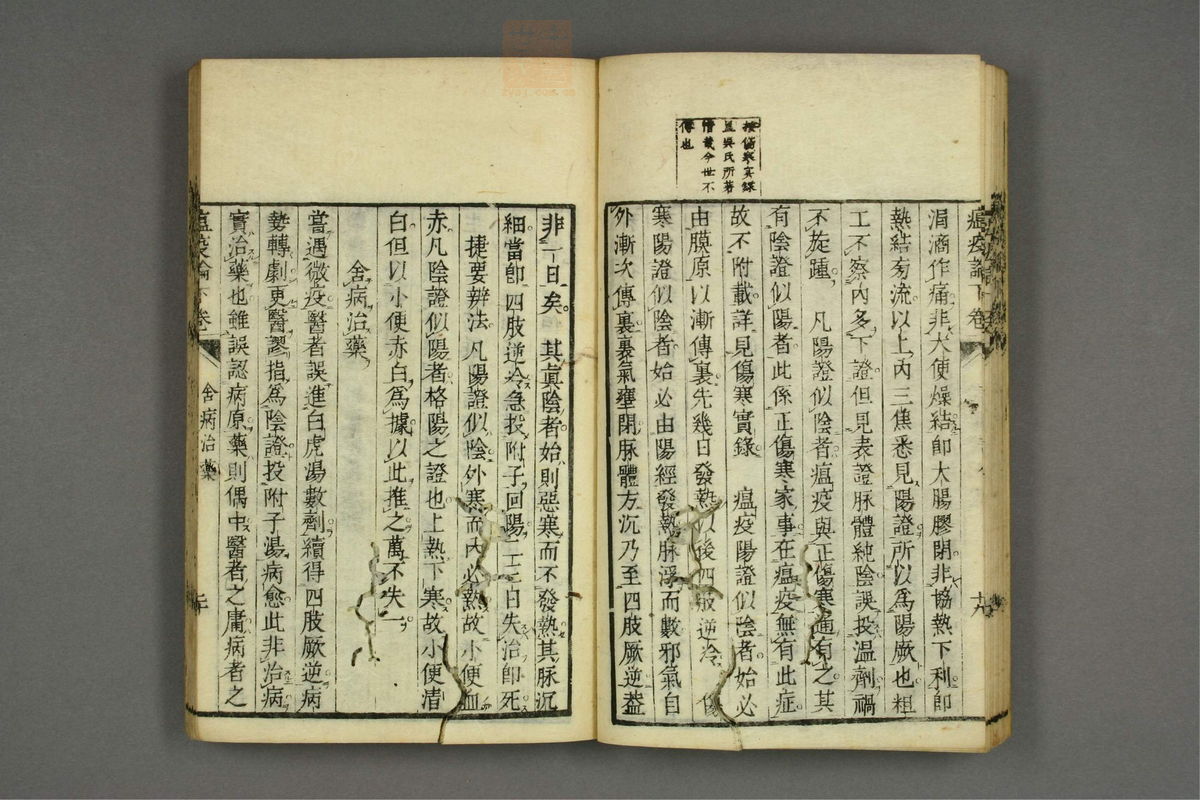 按傷寒實錄
且吳氏所著
惜哉今世不
傳也
瘟疫論下卷
十九
涓滴作痛非大便燥結即大腸膠閉非協熱下利即
熱結旁流以上內三焦悉見陽證所以為陽厥也粗
工不察內多下證但見表證脉體純陰誤投溫劑禍
不旋踵 凡陽證似陰者瘟疫與正傷寒通有之其
有陰證似陽者此係正傷寒家事在瘟疫無有此症
故不附載詳見傷寒實錄 瘟疫陽證似陰者始必
由膜原以漸傳裏先幾日發熱以後四肢逆冷 傷
寒陽證似陰者始必由陽經發熱脉浮而數邪氣自
外漸次傳裏裏氣壅閉脉體方沉乃至四肢厥逆蓋
非一日矣 其真陰者始則惡寒而不發熱其脉沉
細當即四肢逆冷急投附子回陽二三日失治即死
捷要辨法凡陽證似陰外寒而內必熱故小便血
赤凡陰證似陽者格陽之證也上熱下寒故小便清
白但以小便赤白為據以此推之萬不失一
舍病治藥
嘗遇微疫醫者誤進白虎湯數劑續得四肢厥逆病
勢轉劇更醫謬指為陰證投附子湯病愈此非治病
實治藥也雖誤認病原藥則偶中醫者之庸病者之
瘟疫論下卷
舍病治藥
二十